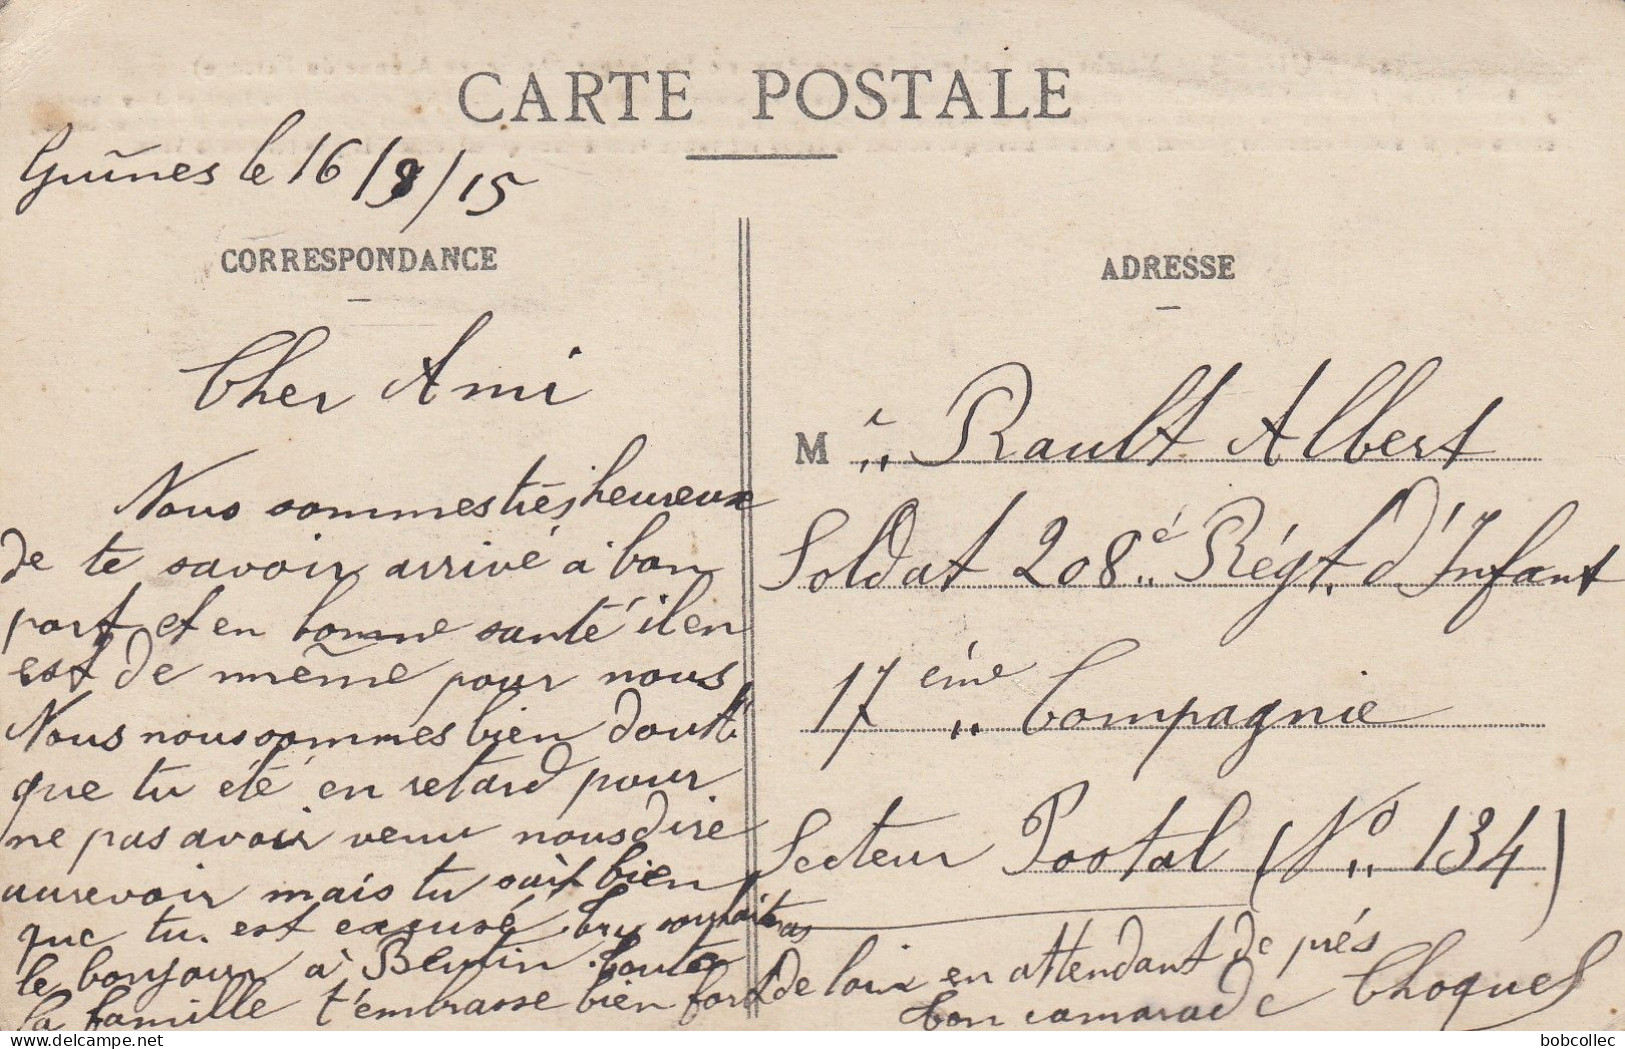 CARTE POSTALE
Guînes le 16/9/15
CORRESPONDANCE
Cher Ami
Nous sommes très heureux
de te savoir arrivé a bon
port et en bonne santé il en
est de même pour nous
Nous nous sommes bien douté
que tu été en retard pour
ne pas avoir venu nous dire
aurevoir mais tu sait bien
que tu est excusé. tu souhaiteras
le bonjour à Bentin. toute
la famille t'embrasse bien fort de loin en attendant de près
ton camarade Choquel
ADRESSE
Mr Rault Albert
Soldat 208e Régt. d'Infant
17ème Compagnie
Secteur Postal (No 134)
bobcollec